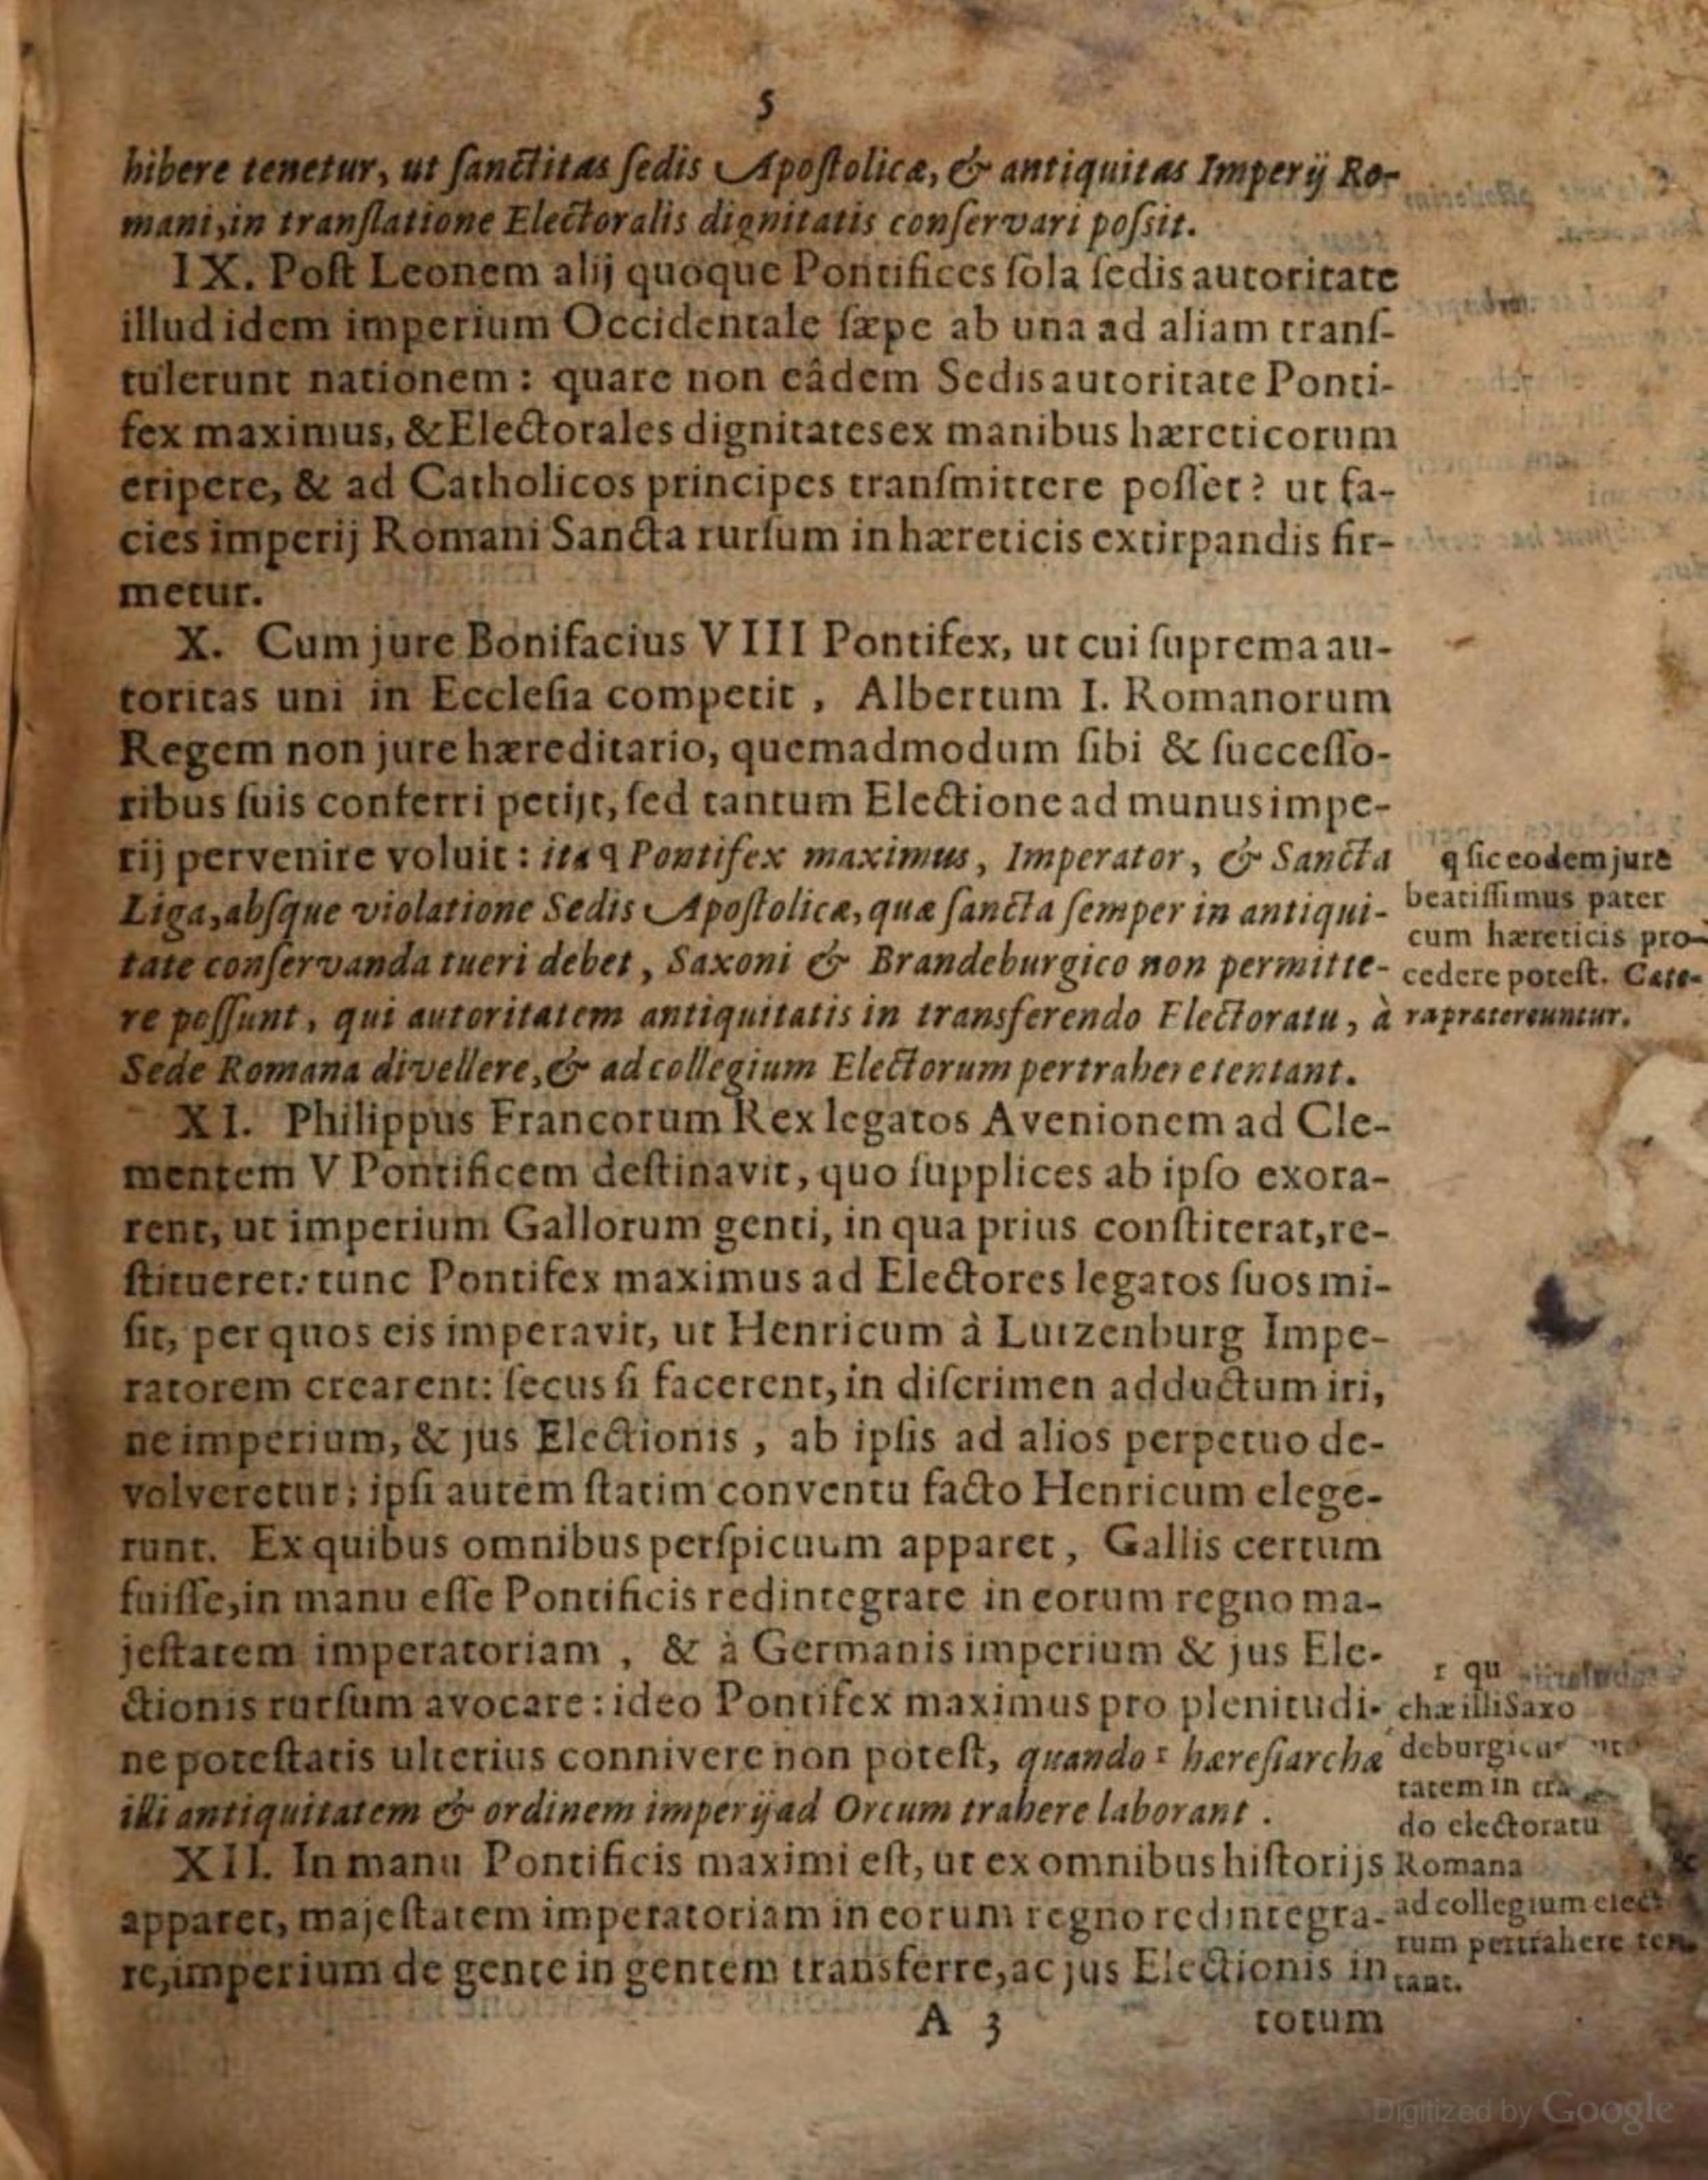 5
hibere tenetur, ut ſanctitas ſedis Apoſtolicæ, & antiquitas Imperij Ro-
mani, in tranſlatione Electoralis dignitatis conſervari poſsit.
IX. Poſt Leonem alij quoque Pontifices ſola ſedis autoritate
illud idem imperium Occidentale ſæpe ab una ad aliam tranſ-
tulerunt nationem : quare non eâdem Sedis autoritate Ponti-
fex maximus, & Electorales dignitates ex manibus hæreticorum
eripere, & ad Catholicos principes tranſmittere poſſet? ut fa-
cies imperij Romani Sancta rurſum in hæreticis extirpandis fir-
metur.
X. Cum jure Bonifacius VIII Pontifex, ut cui ſuprema au-
toritas uni in Eccleſia competit , Albertum I. Romanorum
Regem non jure hæreditario, quemadmodum ſibi & ſucceſſo-
ribus ſuis conferri petijt, ſed tantum Electione ad munus impe-
rij pervenire voluit : itaq Pontifex maximus, Imperator, & Sancta
Liga, abſque violatione Sedis Apoſtolicæ, quæ ſancta ſemper in antiqui-
tate conſervanda tueri debet, Saxoni & Brandeburgico non permitte-
re poſſunt, qui autoritatem antiquitatis in transferendo Electoratu, à
Sede Romana divellere, & ad collegium Electorum pertrahere tentant.
q ſic eodem jure
beatiſſimus pater
cum hæreticis pro-
cedere poteſt. Cæte-
ra prætereuntur.
XI. Philippus Francorum Rex legatos Avenionem ad Cle-
mentem V Pontificem deſtinavit, quo ſupplices ab ipſo exora-
rent, ut imperium Gallorum genti, in qua prius conſtiterat, re-
ſtitueret: tunc Pontifex maximus ad Electores legatos ſuos mi-
ſit, per quos eis imperavit, ut Henricum à Lutzenburg Impe-
ratorem crearent: ſecus ſi facerent, in diſcrimen adductum iri,
ne imperium, & jus Electionis , ab ipſis ad alios perpetuo de-
volveretur; ipſi autem ſtatim conventu facto Henricum elege-
runt. Ex quibus omnibus perſpicuum apparet , Gallis certum
fuiſſe, in manu eſſe Pontificis redintegrare in eorum regno ma-
jeſtatem imperatoriam , & à Germanis imperium & jus Ele-
ctionis rurſum avocare : ideo Pontifex maximus pro plenitudi-
ne poteſtatis ulterius connivere non poteſt, quando r hæreſiarchæ
illi antiquitatem & ordinem imperij ad Orcum trahere laborant .
r qu
chæ illi Saxo
deburgicus
tatem in tra
do electoratu
Romana
ad collegium elect
rum pertrahere ten-
tant.
XII. In manu Pontificis maximi eſt, ut ex omnibus hiſtorijs
apparet, majeſtatem imperatoriam in eorum regno redintegra-
re, imperium de gente in gentem transferre, ac jus Electionis in
A 3 totum
Digitized by Google